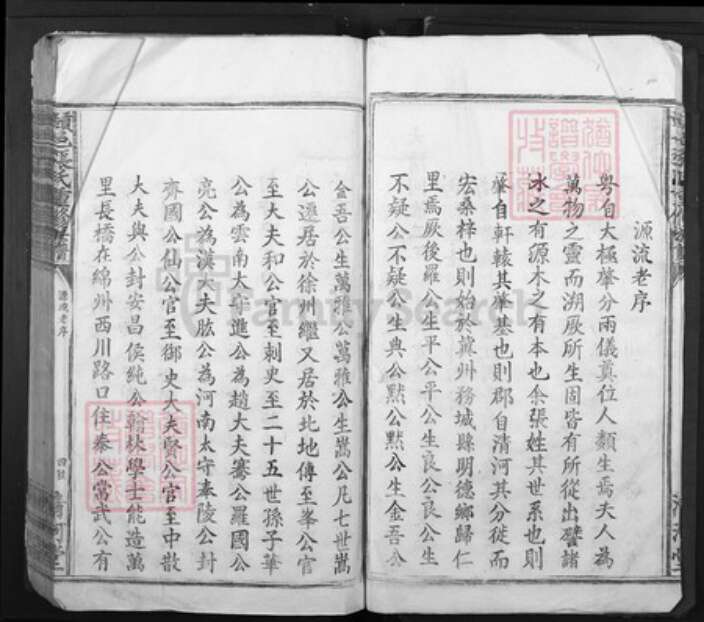 源流老序
粵自大極肇分兩儀奠位人類生焉夫人為
萬物之靈而溯厥所生固皆有所從出譬諸
水之有源木之有本也余張姓其世系也則
肇自軒轅其肇基也則郡自清河其分徙而
宏桑梓也則始於冀州務城縣明德鄉歸仁
里焉厥後羅公生平公平公生良公良公生
不疑公不疑公生典公默公默公生金吾公
金吾公生萬雅公萬雅公生嵩公凡七世嵩
公遷居於徐州繼又居於北地傳至峯公官
至大夫和公官至刺史至二十五世孫子華
公為雲南大守進公為趙大夫騫公羅國公
亮公為漢大夫肱公為河南太守奉陵公封
齊國公仙公官至御史大夫賢公官至中散
大夫與公封安昌侯純公翰林學士能造萬
里長橋在綿州西川路口住奏公當武公有
源流老序
清河堂
FamilySearch